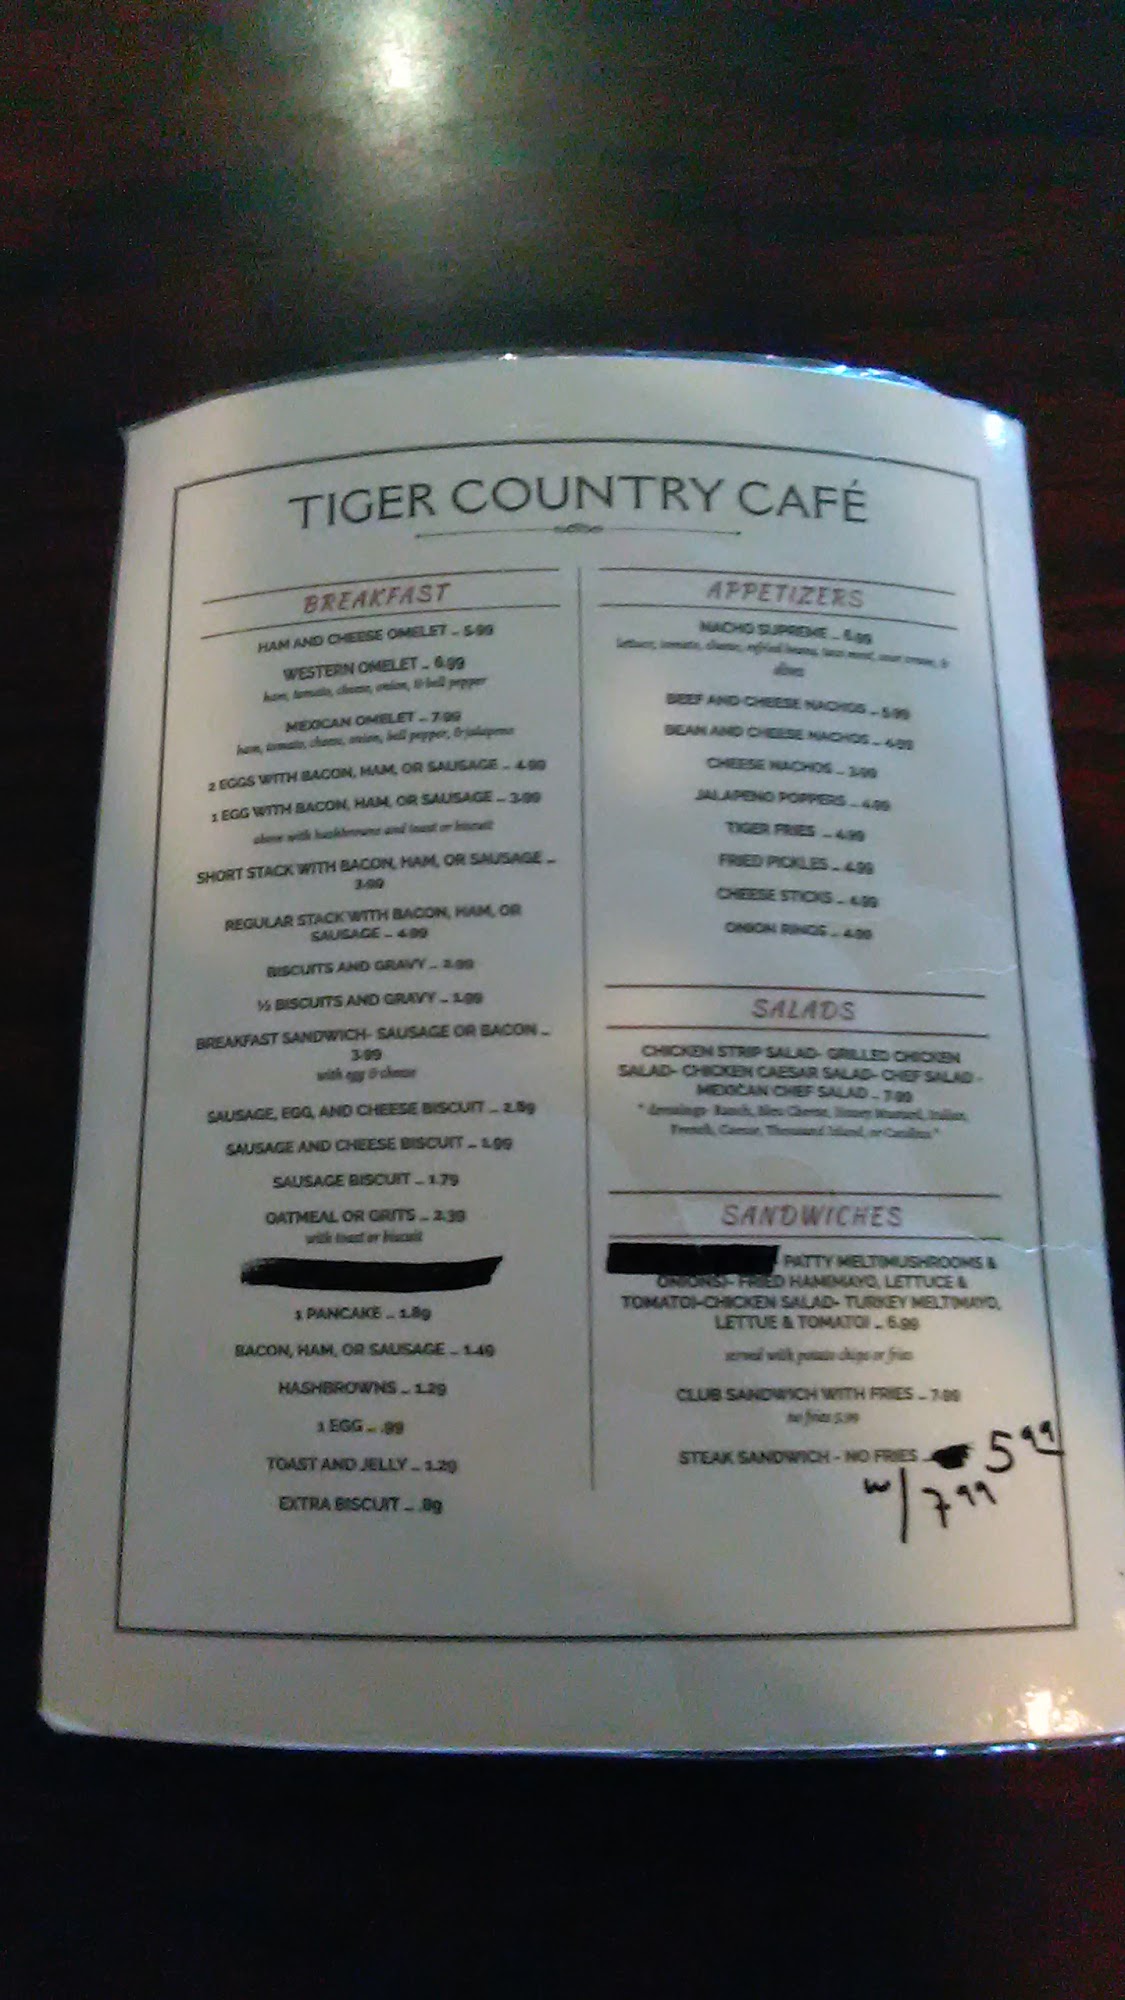 TIGER COUNTRY CAFÉ
BREAKFAST
HAM AND CHEESE OMELET .. 5.99
WESTERN OMELET .. 6.99
ham, tomato, cheese, onion, & bell pepper
MEXICAN OMELET .. 7.99
ham, tomato, cheese, onion, bell pepper, & jalapeno
2 EGGS WITH BACON, HAM, OR SAUSAGE .. 4.99
1 EGG WITH BACON, HAM, OR SAUSAGE .. 3.99
above with hashbrowns and toast or biscuit
SHORT STACK WITH BACON, HAM, OR SAUSAGE ..
3.99
REGULAR STACK WITH BACON, HAM, OR
SAUSAGE .. 4.99
BISCUITS AND GRAVY .. 2.99
½ BISCUITS AND GRAVY .. 1.99
BREAKFAST SANDWICH- SAUSAGE OR BACON ..
3.99
with egg & cheese
SAUSAGE, EGG, AND CHEESE BISCUIT .. 2.89
SAUSAGE AND CHEESE BISCUIT .. 1.99
SAUSAGE BISCUIT .. 1.79
OATMEAL OR GRITS .. 2.39
with toast or biscuit
1 PANCAKE .. 1.89
BACON, HAM, OR SAUSAGE .. 1.49
HASHBROWNS .. 1.29
1 EGG .. .99
TOAST AND JELLY .. 1.29
EXTRA BISCUIT .. .89
APPETIZERS
NACHO SUPREME .. 6.99
lettuce, tomato, cheese, refried beans, taco meat, sour cream, &
olives
BEEF AND CHEESE NACHOS .. 5.99
BEAN AND CHEESE NACHOS .. 4.99
CHEESE NACHOS .. 3.99
JALAPENO POPPERS .. 4.99
TIGER FRIES .. 4.99
FRIED PICKLES .. 4.99
CHEESE STICKS .. 4.99
ONION RINGS .. 4.99
SALADS
CHICKEN STRIP SALAD- GRILLED CHICKEN
SALAD- CHICKEN CAESAR SALAD- CHEF SALAD -
MEXICAN CHEF SALAD .. 7.99
* dressings- Ranch, Bleu Cheese, Honey Mustard, Italian,
French, Caesar, Thousand Island, or Catalina *
SANDWICHES
- PATTY MELT(MUSHROOMS &
ONIONS)- FRIED HAM(MAYO, LETTUCE &
TOMATO)-CHICKEN SALAD- TURKEY MELT(MAYO,
LETTUE & TOMATO) .. 6.99
served with potato chips or fries
CLUB SANDWICH WITH FRIES .. 7.99
no fries 5.99
STEAK SANDWICH - NO FRIES .. 5.99
w/ 7.99